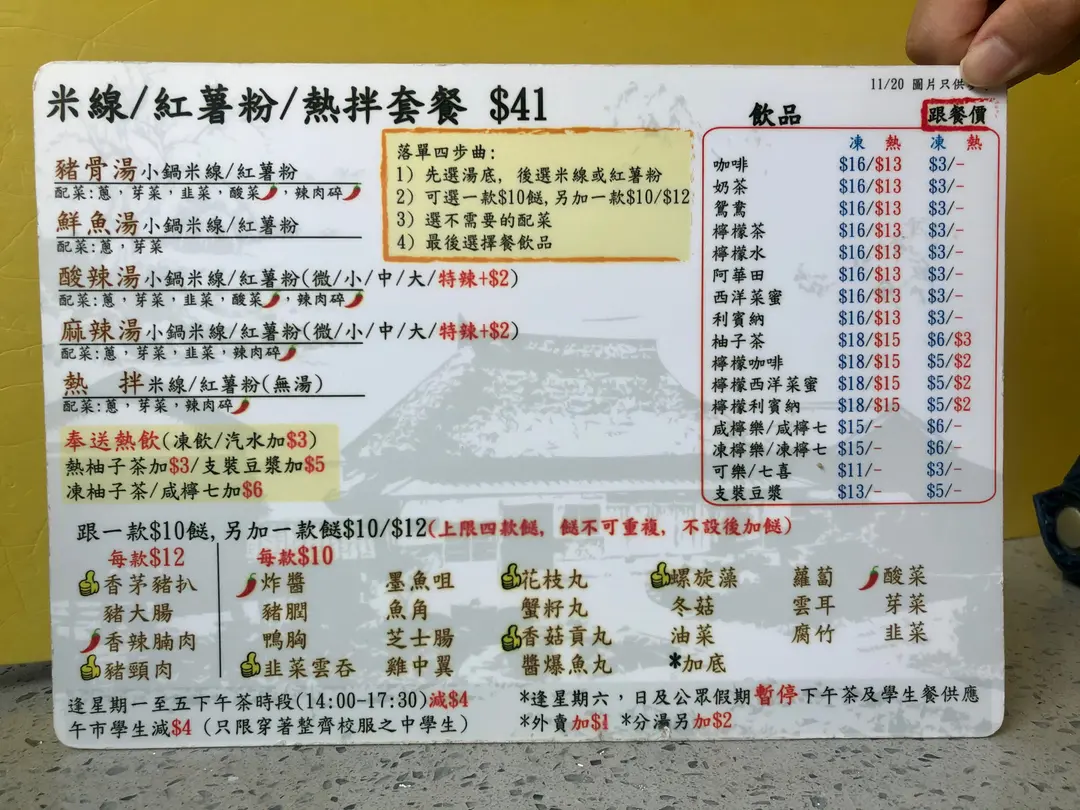 米線/紅薯粉/熱拌套餐 $41
11/20 圖片只供
豬骨湯小鍋米線/紅薯粉
配菜:蔥,芽菜,韭菜,酸菜,辣肉碎
鮮魚湯小鍋米線/紅薯粉
配菜:蔥,芽菜
酸辣湯小鍋米線/紅薯粉(微/小/中/大/特辣+$2)
配菜:蔥,芽菜,韭菜,酸菜,辣肉碎
麻辣湯小鍋米線/紅薯粉(微/小/中/大/特辣+$2)
配菜:蔥,芽菜,韭菜,辣肉碎
熱 拌米線/紅薯粉(無湯)
配菜:蔥,芽菜,辣肉碎
落單四步曲:
1) 先選湯底, 後選米線或紅薯粉
2) 可選一款$10餸,另加一款$10/$12
3) 選不需要的配菜
4) 最後選擇餐飲品
奉送熱飲(凍飲/汽水加$3)
熱柚子茶加$3/支裝豆漿加$5
凍柚子茶/咸檸七加$6
飲品 跟餐價
凍 熱
咖啡 $16/$13 $3/-
奶茶 $16/$13 $3/-
鴛鴦 $16/$13 $3/-
檸檬茶 $16/$13 $3/-
檸檬水 $16/$13 $3/-
阿華田 $16/$13 $3/-
西洋菜蜜 $16/$13 $3/-
利賓納 $16/$13 $3/-
柚子茶 $18/$15 $6/$3
檸檬咖啡 $18/$15 $5/$2
檸檬西洋菜蜜 $18/$15 $5/$2
檸檬利賓納 $18/$15 $5/$2
咸檸樂/咸檸七 $15/- $6/-
凍檸樂/凍檸七 $15/- $6/-
可樂/七喜 $11/- $3/-
支裝豆漿 $13/- $5/-
跟一款$10餸,另加一款餸$10/$12(上限四款餸, 餸不可重複, 不設後加餸)
每款$12 每款$10
香茅豬扒 炸醬 墨魚咀 花枝丸 螺旋藻 蘿蔔 酸菜
豬大腸 豬膶 魚角 蟹籽丸 冬菇 雲耳 芽菜
香辣腩肉 鴨胸 芝士腸 香菇貢丸 油菜 腐竹 韭菜
豬頸肉 韭菜雲吞 雞中翼 醬爆魚丸 *加底
逢星期一至五下午茶時段(14:00-17:30)減$4
午市學生減$4 (只限穿著整齊校服之中學生)
*逢星期六,日及公眾假期暫停下午茶及學生餐供應
*外賣加$1 *分湯另加$2